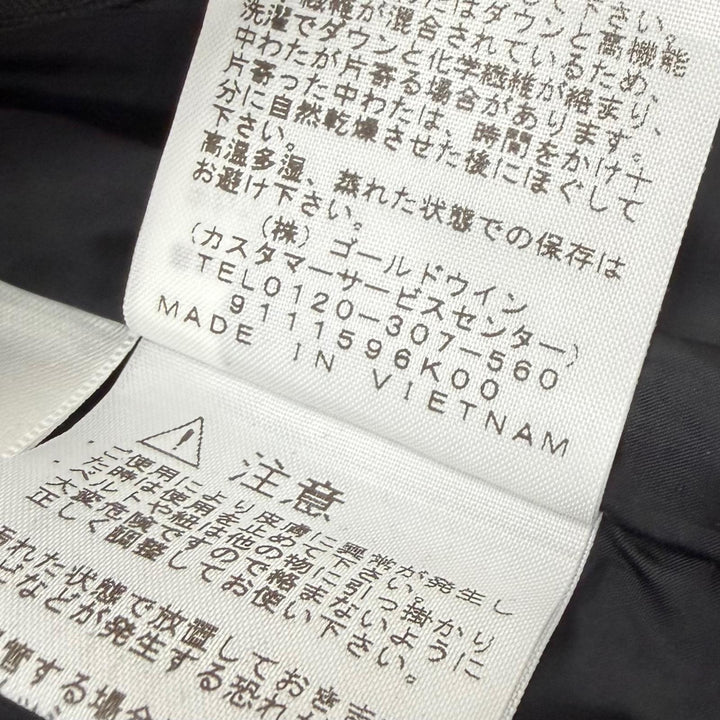 はダウンと高機能
繊維が混合されているため、
洗濯でダウンと化学繊維が絡まり、
中わたが片寄る場合があります。
片寄った中わたは、時間をかけ十
分に自然乾燥させた後にほぐして
下さい。
高温多湿、蒸れた状態での保存は
お避け下さい。
(株)ゴールドウイン
(カスタマーサービスセンター)
TEL0120-307-560
9111596K00
MADE IN VIETNAM
注意
ご使用により皮膚に異常が発生し
た時は使用を止めて下さい。
ベルトや紐は他の物に引っ掛かり
大変危険ですので絡まないように
正しく調整してお使い下さい。
汚れた状態で放置しておき
などが発生する恐れ
する場合